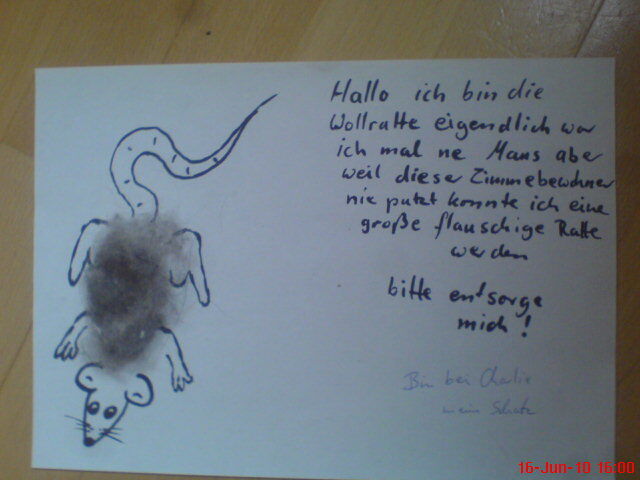 Hallo ich bin die
Wollratte eigendlich war
ich mal ne Maus aber
weil dieser Zimmebewohner
nie putzt konnte ich eine
große flauschige Ratte
werden
bitte entsorge
mich!
Bin bei Charlie
mein Schatz
16-Jun-10 16:00